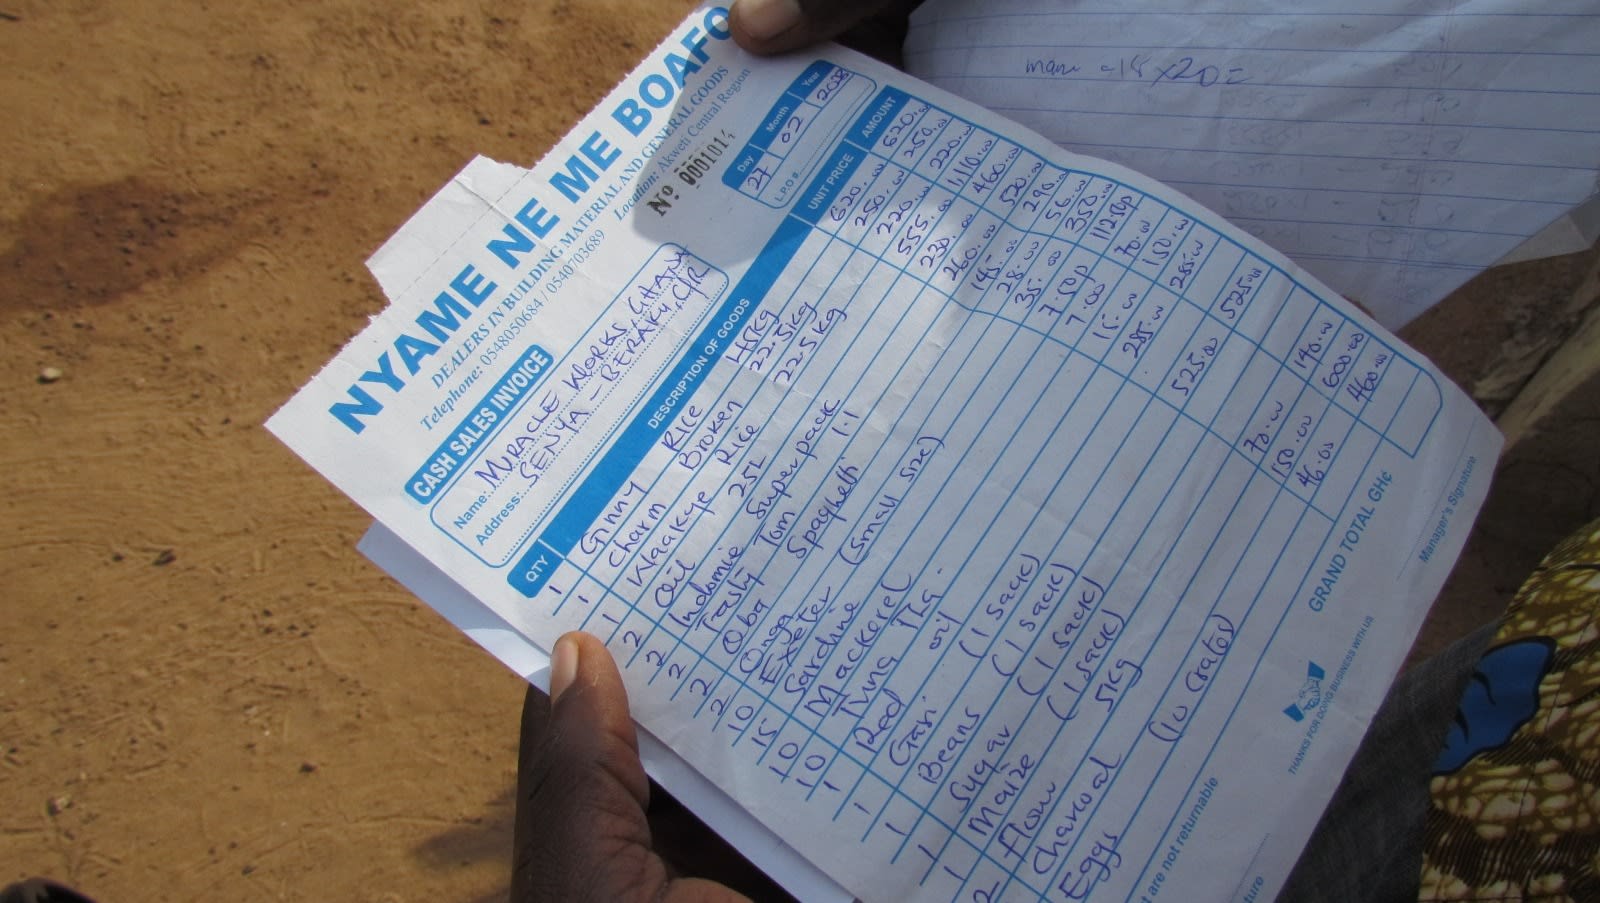 NYAME NE ME BOAFO
DEALERS IN BUILDING MATERIAL AND GENERAL GOODS
Telephone: 0548050684 / 0540703689 Location: Akweti Central Region
CASH SALES INVOICE
Nº 000101
Day Month Year
27 02
L.P.O #
Name: MIRACLE WORKS GHANA
Address: SENYA - BERAKU, C/R
QTY DESCRIPTION OF GOODS UNIT PRICE AMOUNT
1 Ginny Rice 45kg 620.00 620.00
1 Charm Broken 22.5kg 250.00 250.00
1 Klaakye Rice 22.5kg 220.00 220.00
2 Oil 25L 555.00 1,110.00
2 Indomie Superpack 230.00 460.00
2 Tasty Tom 1.1 260.00 520.00
2 Oba Spaghetti 145.00 290.00
2 Onga 28.00 56.00
10 Exeter (Small size) 35.00 350.00
15 Sardine 7.50p 112.50p
10 Mackerel 7.00 70.00
10 Tuna 15.00 150.00
1 Red oil 285.00 285.00
1 Gari (1 sack) 525.00 525.00
1 Beans (1 sack)
1 Sugar (1 sack)
1 Maize (1 sack)
2 Flour 5kg 70.00 140.00
Charcoal 150.00 600.00
Eggs (10 crates) 46.00 460.00
GRAND TOTAL GH¢
are not returnable
THANKS FOR DOING BUSINESS WITH US
Manager's Signature
18 x 20 =